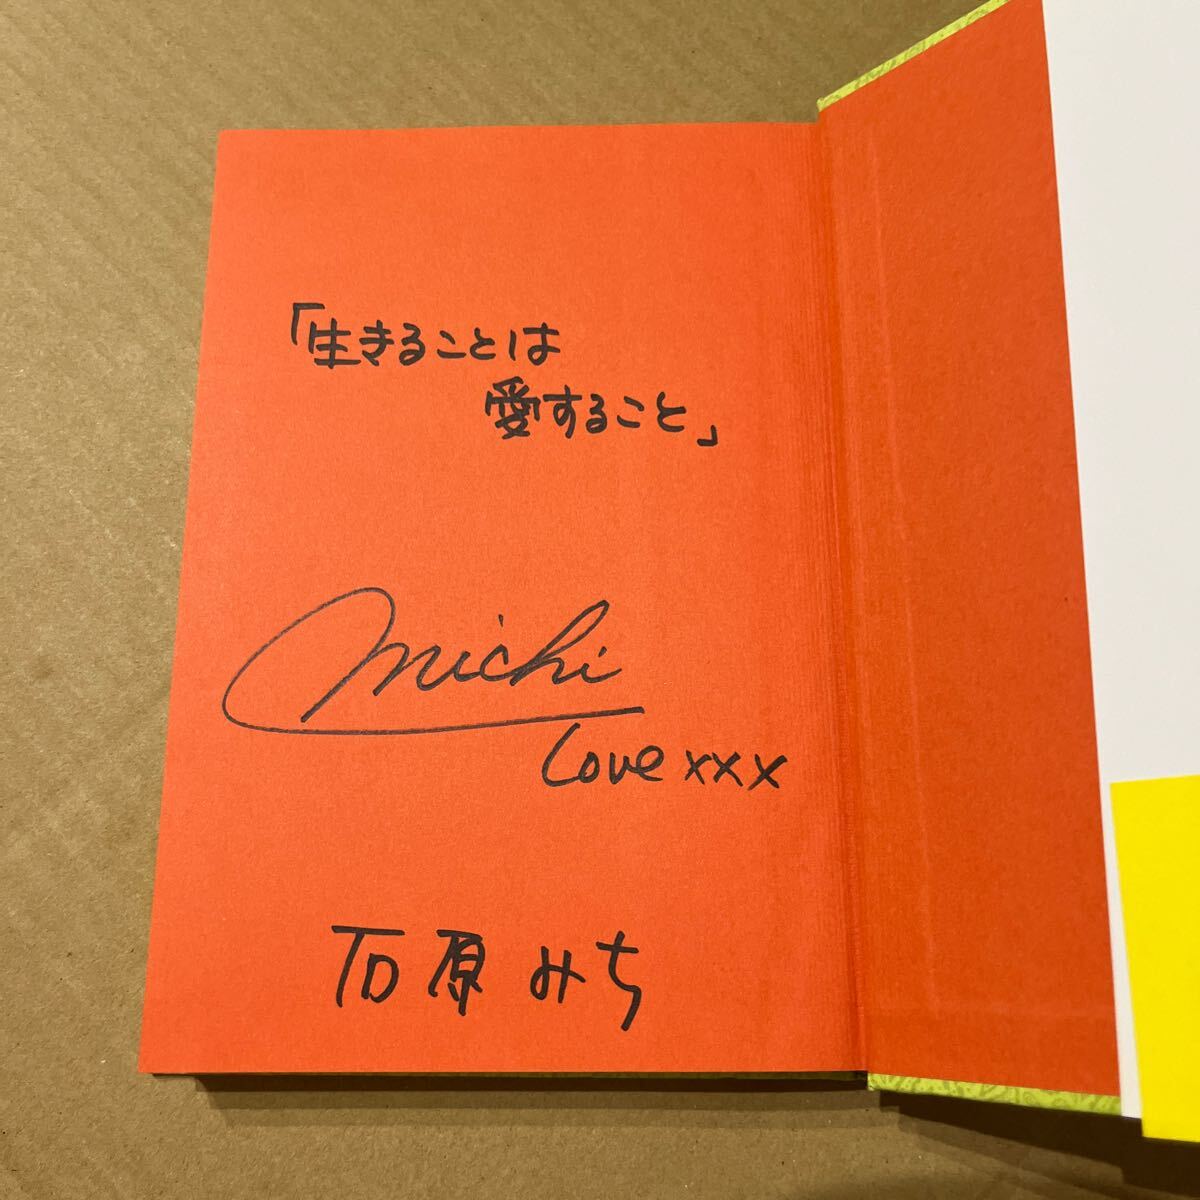 「生きることは
愛すること」
michi
Love xxx
石原みち